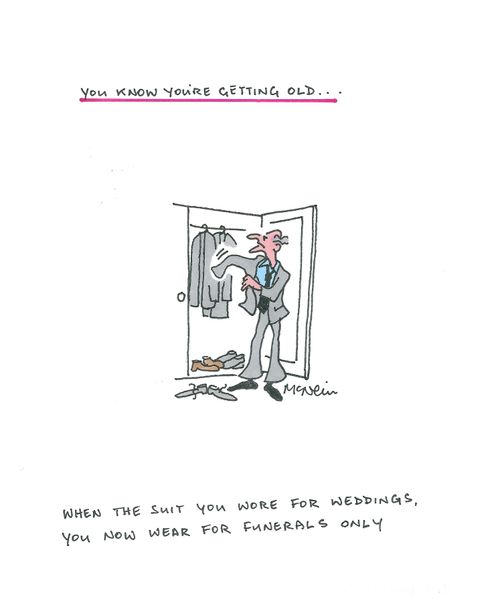 YOU KNOW YOU'RE GETTING OLD...
McNeill
WHEN THE SUIT YOU WORE FOR WEDDINGS,
YOU NOW WEAR FOR FUNERALS ONLY